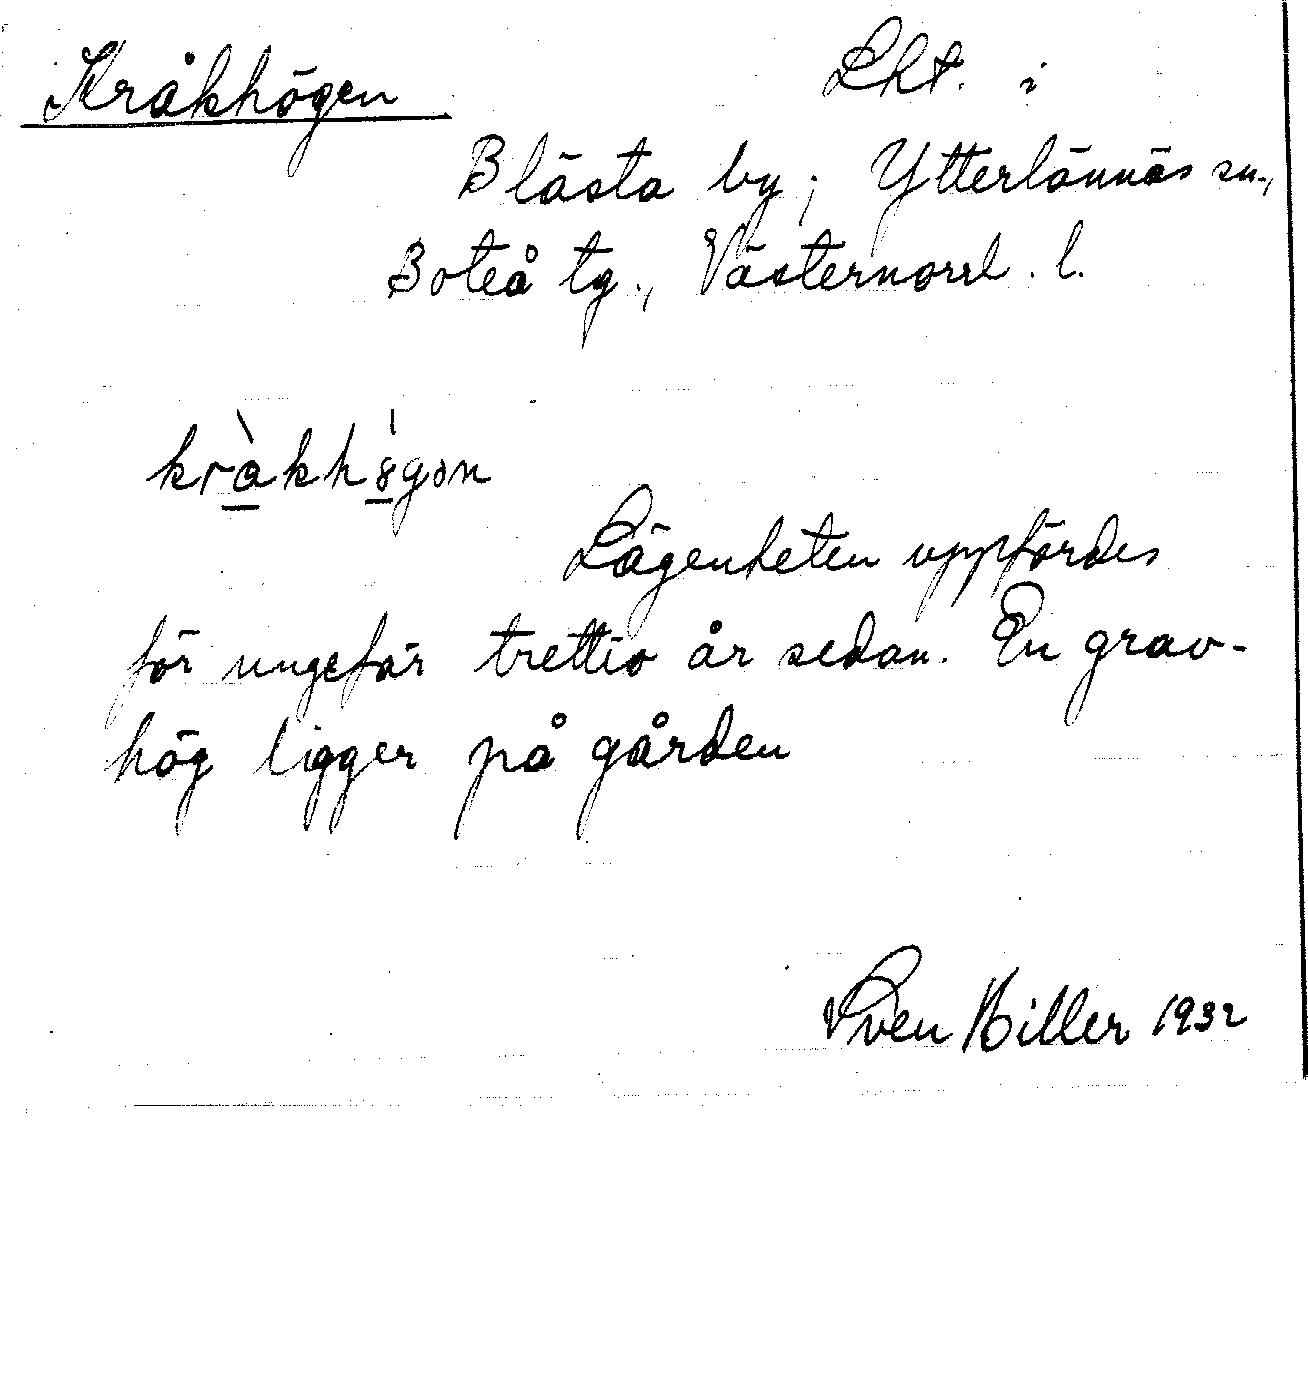 Kråkhögen Lht. i
Blästa by; Ytterlännäs sn.,
Boteå tg., Västernorrl. l.
kràkhögən
Lägenheten uppfördes
för ungefär trettio år sedan. En grav-
hög ligger på gården
Sven Hiller 1932